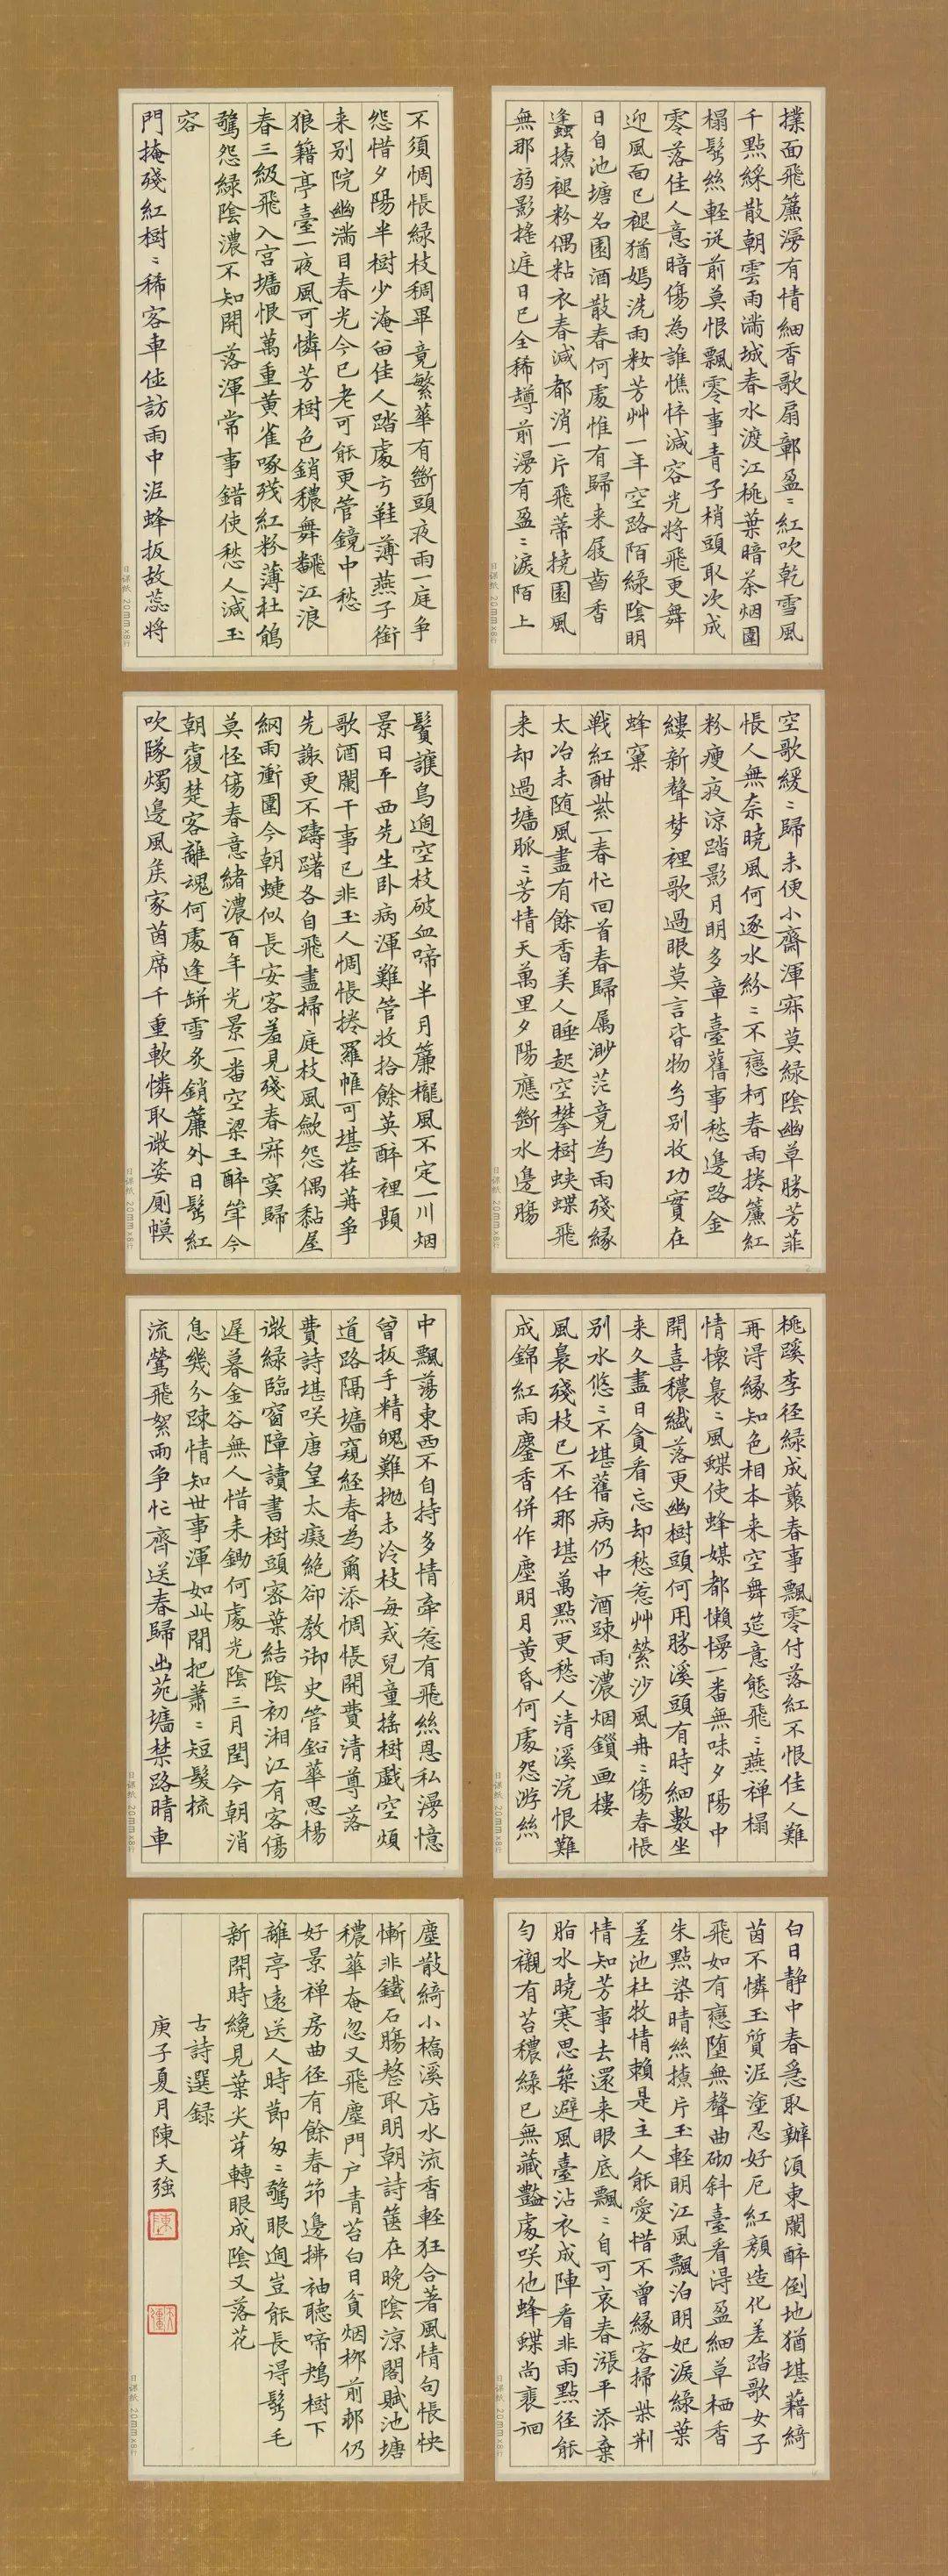 撲面飛簾漫有情細香歌扇鄣盈〻紅吹乾雪風
千點綵散朝雲雨滿城春水渡江桃葉暗茶烟圍
榻鬢絲輕從前莫恨飄零事青子梢頭取次成
零落佳人意暗傷為誰憔悴減容光將飛更舞
迎風面已褪猶嫣洗雨粧芳艸一年空路陌綠陰明
日自池塘名園酒散春何處惟有歸来屐齒香
蠭撩褪粉偶粘衣春減都消一片飛蒂撓園風
無那弱影搖庭日已全稀罇前漫有盈〻淚陌上
空歌緩〻歸未便小齋渾寂莫綠陰幽草勝芳菲
悵人無奈曉風何逐水紛〻不戀柯春雨捲簾紅
粉瘦夜涼踏影月明多章臺舊事愁邊路金
縷新聲梦裡歌過眼莫言皆物勻别收功實在
蜂窠
戰紅酣紫一春忙回首春歸属渺茫竟為雨殘緣
太冶未随風盡有餘香美人睡起空攀樹蛱蝶飛
来却過墻脈〻芳情天萬里夕陽應斷水邊腸
桃蹊李径綠成叢春事飄零付落紅不恨佳人難
再淂緣知色相本来空舞筵意態飛〻燕禅榻
情懷裊〻風蝶使蜂媒都懶慢一番無味夕陽中
開喜穠纎落更幽樹頭何用勝溪頭有時細數坐
来久盡日貪看忘却愁惹艸縈沙風冉〻傷春悵
别水悠〻不堪舊病仍中酒疎雨濃烟鎖画樓
風裊殘枝已不任那堪萬點更愁人清溪浣恨難
成錦紅雨鏖香併作塵明月黄昏何處怨游絲
白日静中春急取辦湏東闌醉倒地猶堪藉綺
茵不憐玉質涅塗忍好厄紅顔造化差踏歌女子
飛如有戀堕無聲曲砌斜臺看淂盈細草栖香
朱點染晴絲撩片玉輕明江風飄泊明妃淚綠葉
差池杜牧情賴是主人能愛惜不曾緣客掃柴荆
情知芳事去還来眼底飄〻自可哀春漲平添棄
脂水曉寒思築避風臺沾衣成陣看非雨點径能
勻襯有苔穠綠已無藏豔處咲他蜂蝶尚裵徊
不須惆悵綠枝稠畢竟繁華有斷頭夜雨一庭争
怨惜夕陽半樹少淹畱佳人踏處弓鞋薄燕子銜
来别院幽滿目春光今已老可能更管鏡中愁
狼籍亭臺一夜風可憐芳樹色銷穠舞飜江浪
春三級飛入宫墻恨萬重黄雀啄殘紅粉薄杜鵑
驚怨綠陰濃不知開落渾常事錯使愁人減玉
容
門掩殘紅樹〻稀客車佳訪雨中涅蜂扳故蕊將
鬢護鳥遶空枝破血啼半月簾櫳風不定一川烟
景日平西先生卧病渾難管收拾餘英醉裡題
歌酒闌干事已非玉人惆悵捲羅帷可堪荏苒争
先謝更不躊躇各自飛盡掃庭枝風歛怨偶黏屋
網雨衝圍今朝蜨似長安客羞見殘春寂寞歸
莫怪傷春意緒濃百年光景一番空梁王醉筆今
朝寢楚客離魂何處逢缾雪炙銷簾外日髩紅
吹隊燭邊風矦家茵席千重軟憐取微姿厠幙
中飄蕩東西不自持多情牽惹有飛絲恩私漫憶
曾扳手精魄難抛未冷枝每戎兒童搖樹戯空煩
道路隔墻窺経春為爾添惆悵開費清尊落
費詩堪咲唐皇太癡絶卻教御史管鉛華思楊
微綠臨窗障讀書樹頭密葉結陰初湘江有客傷
遅暮金谷無人惜未鋤何處光陰三月閏今朝消
息幾分疎情知世事渾如此閒把蕭〻短髮梳
流鶯飛絮雨争忙齊送春歸出苑墻禁路晴車
塵散綺小橋溪店水流香輕狂合著風情句悵怏
慚非鐵石腸整取明朝詩箧在晚陰涼閣賦池塘
穠華奄忽又飛塵門户青苔白日貧烟栁前邨仍
好景禅房曲径有餘春笻邊拂袖聴啼鴂樹下
離亭遠送人時莭匆〻驚眼遶豈能長得髩毛
新開時纔見葉尖芽轉眼成陰又落花
古詩選録
庚子夏月陳天強